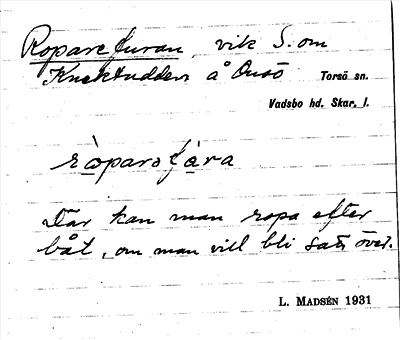 Roparefuran, vik S. om
Knektudden å Onsö Torsö sn.
Vadsbo hd. Skar. l.
ròparofára
Där kan man ropa efter
båt, om man vill bli satt över.
L. MADSÉN 1931